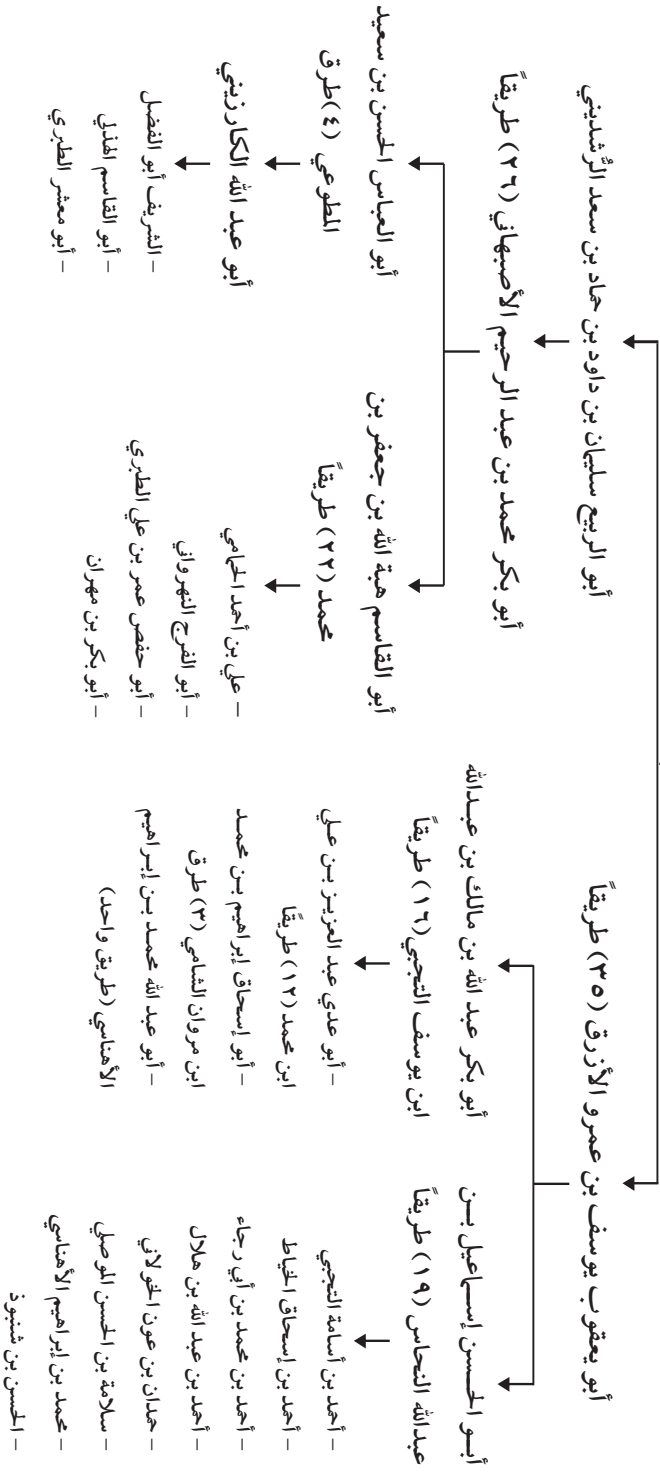 أبو يعقوب يوسف بن عمرو الأزرق (٣٥) طريقاً
أبو الربيع سليمان بن داود بن حماد بن سعد الرُّشديني
أبو الحسن إسماعيل بن
عبدالله النحاس (١٩) طريقاً
– أحمد بن أسامة التجيبي
– أحمد بن إسحاق الخياط
– أحمد بن محمد بن أبي رجاء
– أحمد بن عبد الله بن هلال
– حمدان بن عون الخولاني
– سلامة بن الحسن الموصلي
– محمد بن إبراهيم الأهناسي
– الحسن بن شنبوذ
أبو بكر عبد الله بن مالك بن عبدالله
ابن يوسف التجيبي (١٦) طريقاً
– أبو عدي عبد العزيز بن علي
ابن محمد (١٢) طريقًا
– أبو إسحاق إبراهيم بن محمد
ابن مروان الشامي (٣) طرق
– أبو عبد الله محمد بن إبراهيم
الأهناسي (طريق واحد)
أبو بكر محمد بن عبد الرحيم الأصبهاني (٢٦) طريقاً
أبو القاسم هبة الله بن جعفر بن
محمد (٢٢) طريقاً
– علي بن أحمد الحمامي
– أبو الفرج النهرواني
– أبو حفص عمر بن علي الطبري
– أبو بكر بن مهران
أبو العباس الحسن بن سعيد
المطوعي (٤) طرق
أبو عبد الله الكارزيني
– الشريف أبو الفضل
– أبو القاسم الهذلي
– أبو معشر الطبري